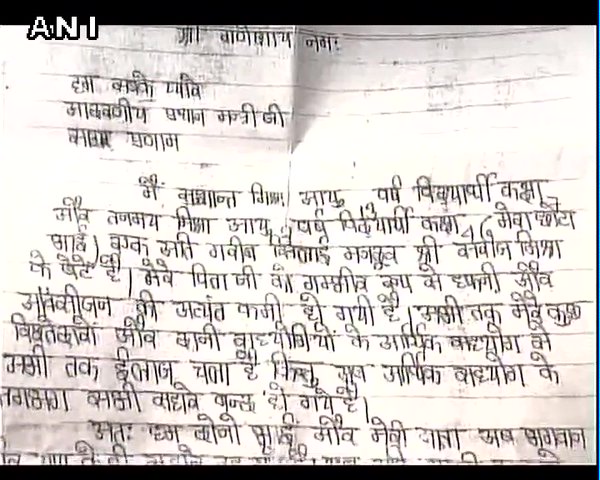 ANI
श्री गणेशाय नमः
हम सबके प्रिय
आदरणीय प्रधान मन्त्री जी
सादर प्रणाम
मैं सुशान्त मिश्रा आयु वर्ष विद्यार्थी कक्षा
और तनमय मिश्रा आयु वर्ष विद्यार्थी कक्षा (मेरा छोटा
भाई) एक अति गरीब सिलाई मजदूर श्री सरोज मिश्रा
के बेटे है। मेरे पिता जी को गम्भीर रूप से और
की अत्यंत कमी हो गयी है। अभी तक मेरे कुछ
रिश्तेदारों और दानी सहयोगियों के आर्थिक सहयोग से
अभी तक ईलाज चला है किन्तु अब आर्थिक सहयोग के
लगभग सभी सहारे बन्द हो गये है।
अतः हम दोनो भाई और मेरी माता अब भगवान